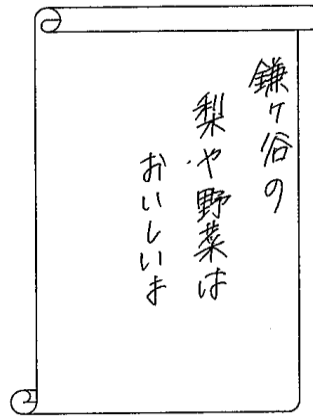 鎌ヶ谷の
梨や野菜は
おいしいよ